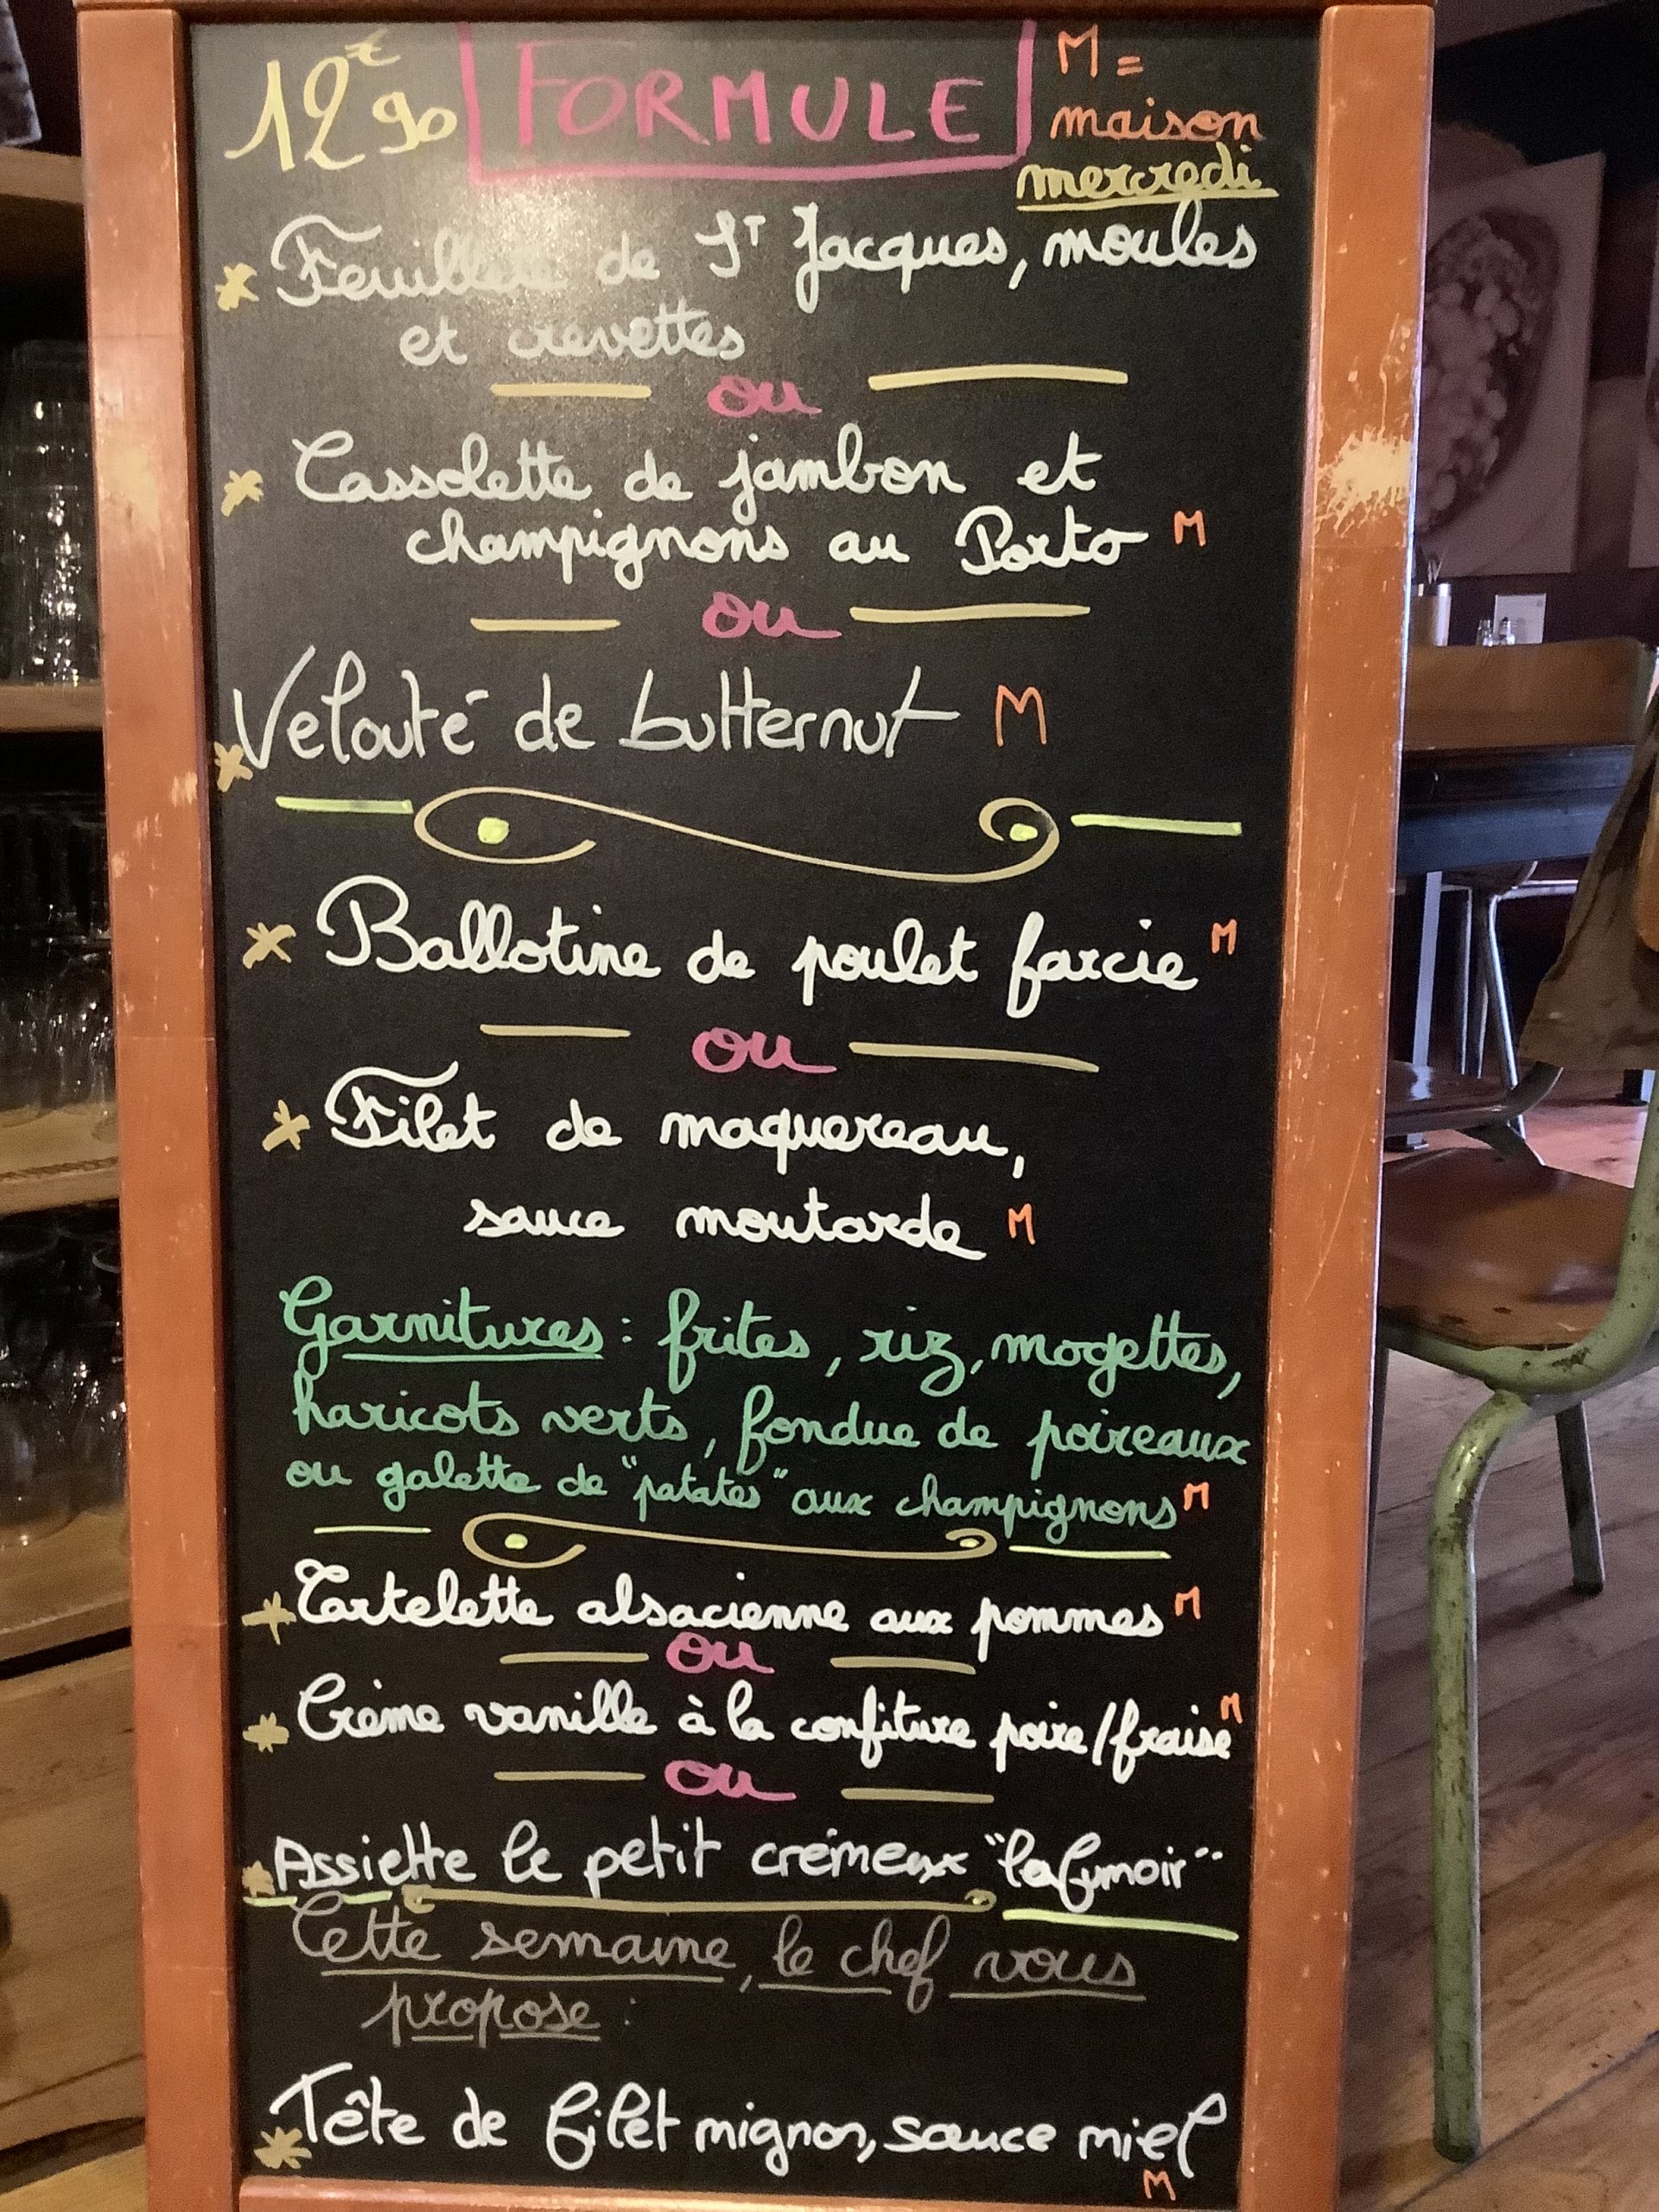 12€90 FORMULE M =
maison
mercredi
* Feuilleté de St Jacques, moules
et crevettes
ou
* Cassolette de jambon et
champignons au Porto M
ou
* Velouté de butternut M
* Ballotine de poulet farcie M
ou
* Filet de maquereau,
sauce moutarde M
Garnitures : frites, riz, mogettes,
haricots verts, fondue de poireaux
ou galette de "patates" aux champignons M
* Tartelette alsacienne aux pommes M
ou
* Crème vanille à la confiture poire/fraise M
ou
* Assiette le petit crémeux "lafumoir"
Cette semaine, le chef vous
propose :
* Tête de filet mignon, sauce miel
M